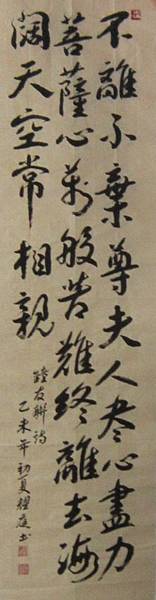 不離不棄尊夫人尽心盡力
菩薩心萬般苦難終離去海
闊天空常相親
陸友联詩
乙未年初夏